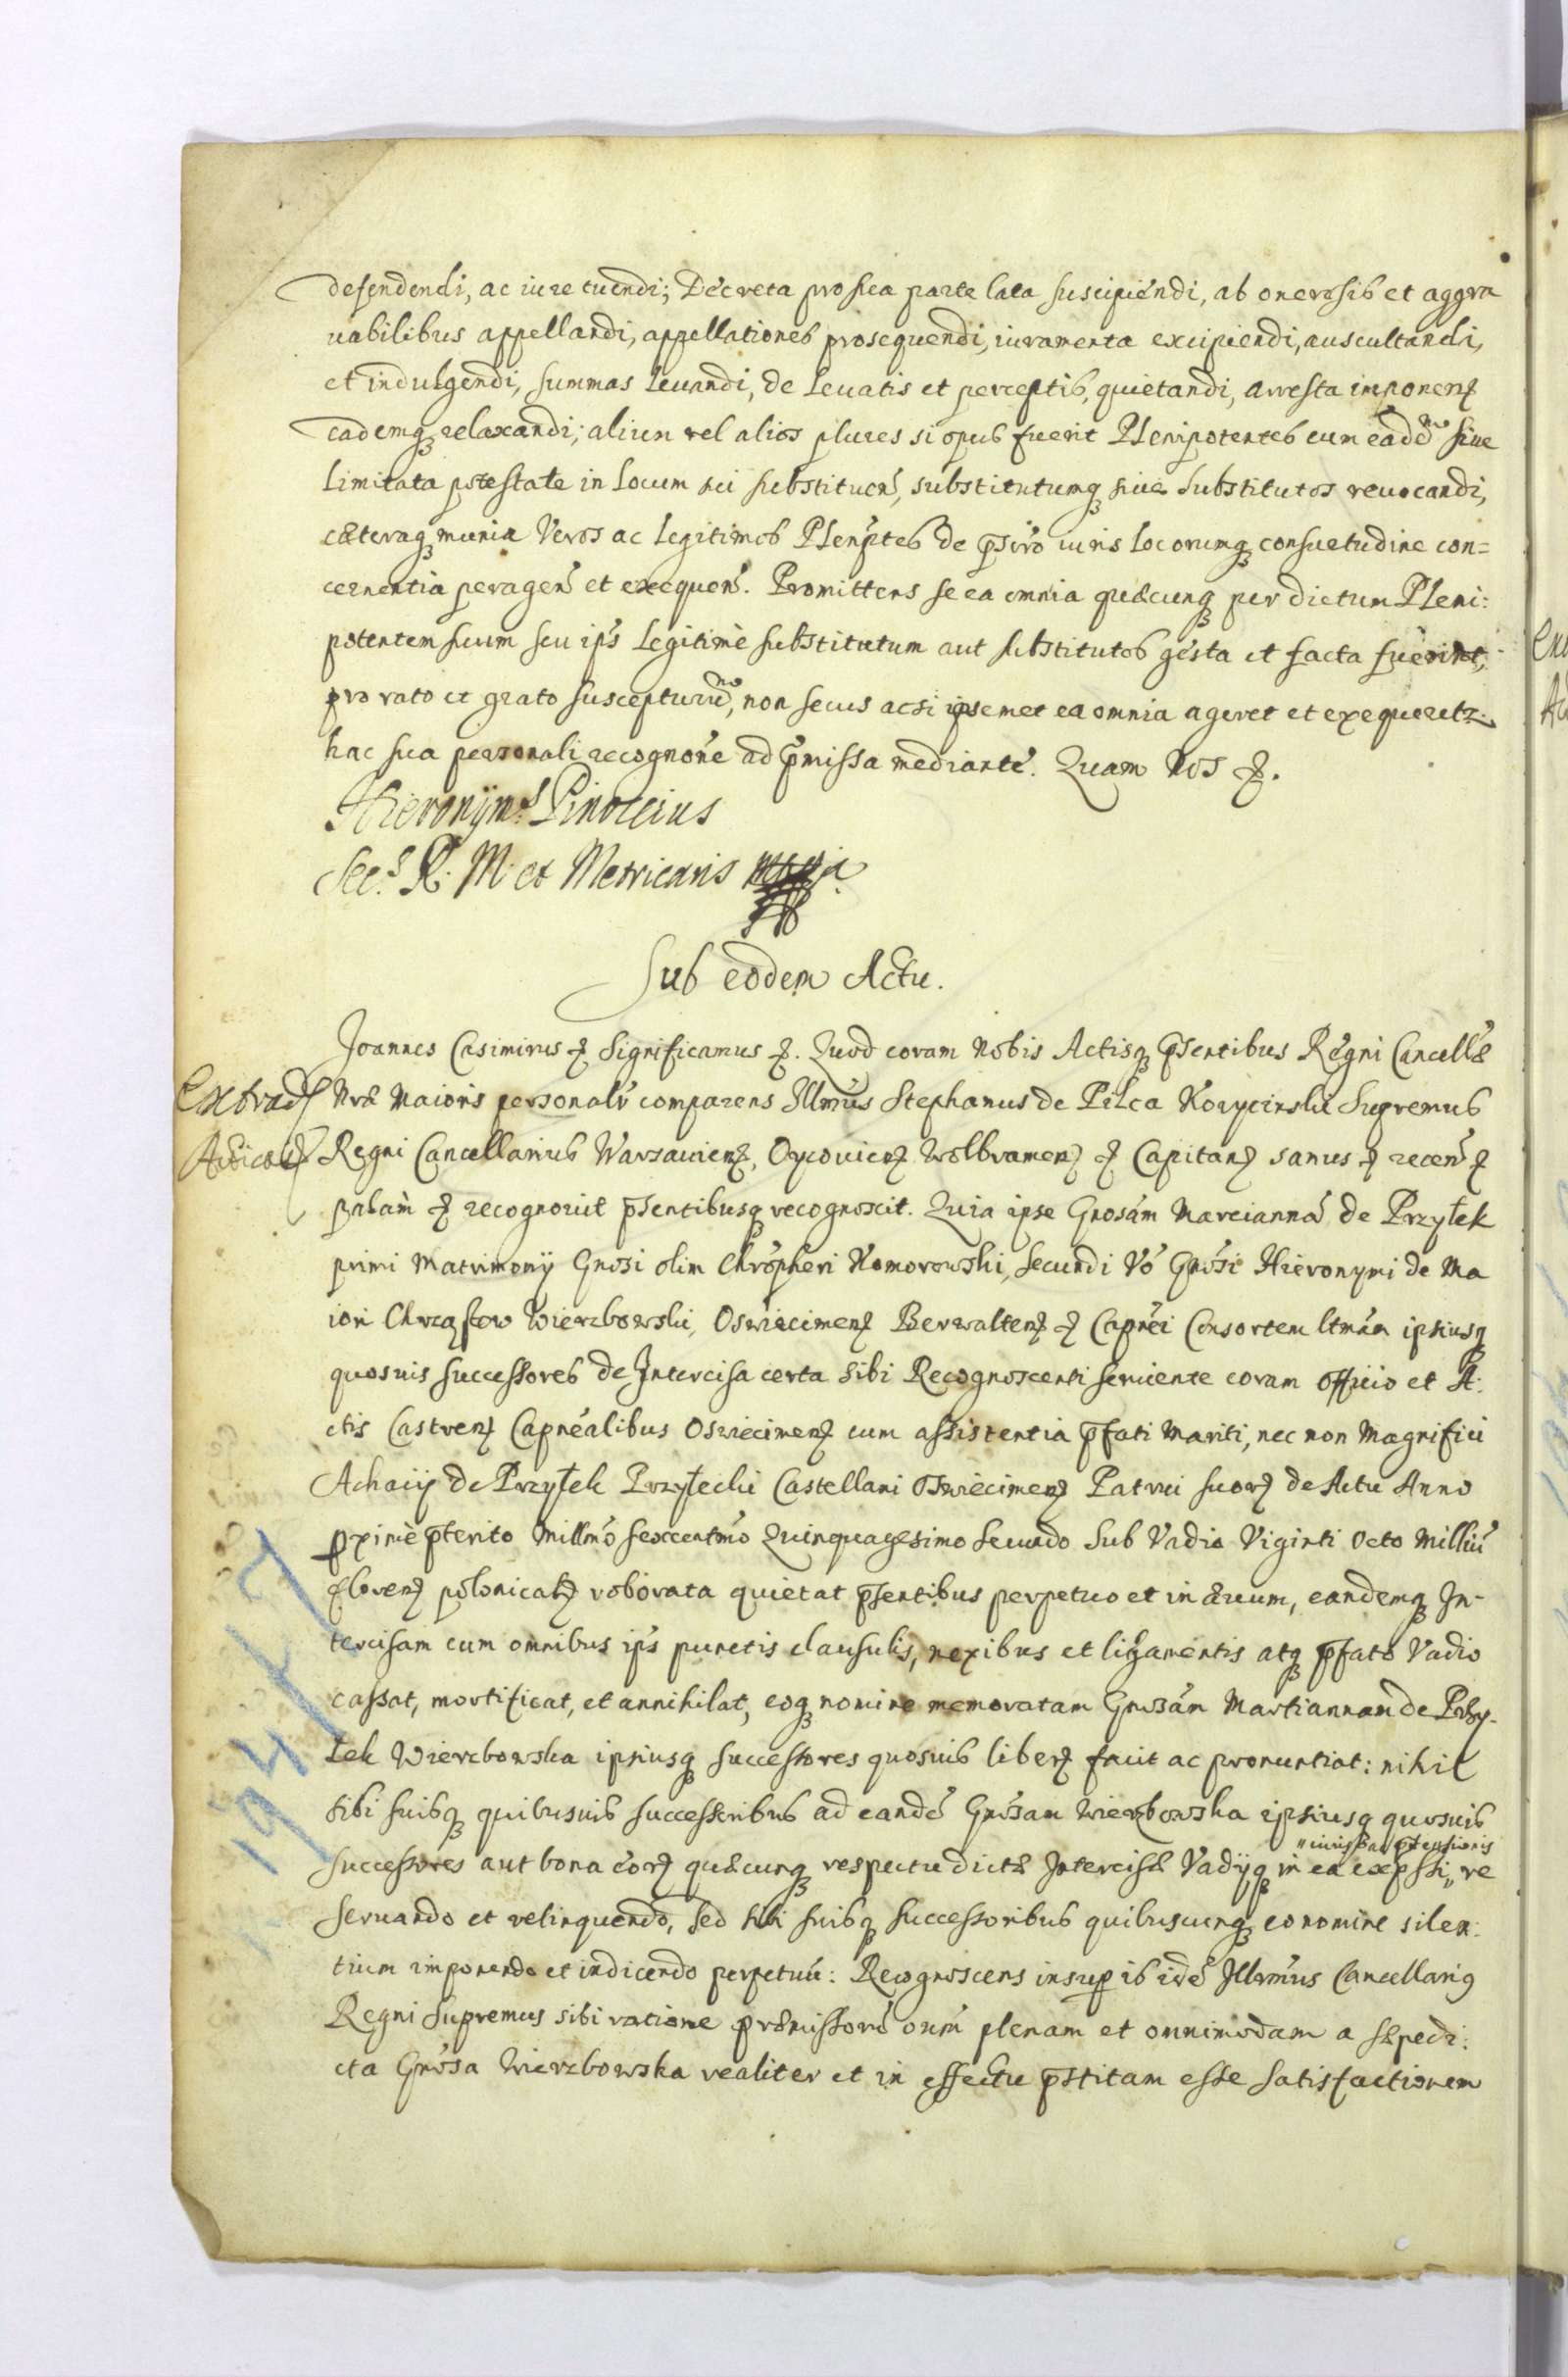 defendendi, ac iure tuendi; Decreta pro sua parte lata suscipiendi, ab onerosis et aggra
uabilibus appellandi, appellationes prosequendi, iuramenta excipiendi, auscultandi,
et indulgendi, summas leuandi, de leuatis et perceptis, quietandi, arresta imponenꝫ
eademqꝫ relaxandi; alium vel alios plures si opus fuerit Plenipotentes cum eadem siue
limitata potestate in locum sui substituen̄, substitutumqꝫ siue substitutos reuocandi,
cæteraqꝫ munia Veros ac legitimos Plenp̄tes de p̄siro iuris locorumqꝫ consuetudine con=
cernentia peragen̄ et exequen̄. Promittens se ea omnia quæcunqꝫ per dictum Pleni:
potentem suum seu ip̄s legitimè substitutum aut substitutos gesta et facta fuerint,
pro rato et grato suscepturum, non secus ac si ipsemet ea omnia ageret et exequeretz.
hac sua personali recognōne ad p̄missa mediante. Quam Nos ꝛ.
Hieronym9 Pinoccius
Secs R. M. et Metricans
Sub eodem Actu.
Joannes Casimirus ꝛ Significamus ꝛ. Quod coram Nobis Actisqꝫ p̄sentibus Regni Cancellæ
Extrad
Nræ Maioris personalr̄ comparens Illm̄us Stephanus de Pilca Korycinski Supremus
Regni Cancellarius Warsauienꝫ, Oycouienꝫ Wolbramenꝫ ꝛ Capitanꝫ sanus ꝛ recen̄ ꝛ
palàm ꝛ recognouit p̄sentibusqꝫ recognoscit. Quia ipse Gnosām Marciannā de Przyłek
primi Matrimonÿ Gnosi olim Chr̄opheri Komorowski, secundi Vō Gnōsi Hieronymi de Ma
iori Chrząstow Wierzbowski, Oswiecimenꝫ Berwaltenꝫ ꝛ Capnēi Consortem ltmām ipsiusqꝫ
quosuis successores de Intercisa certa sibi Recognoscenti seruiente coram officio et A:
ctis Castrenꝫ Capnēalibus Oswiecimenꝫ cum assistentia p̄fati Mariti, nec non Magnifici
Achacÿ de Przyłek Przyłecki Castellani Oswiecimenꝫ Patrui suorꝫ de Actu Anno
p̄ximè p̄terito Millm̄o sexcentm̄o Quinquagesimo Secundo Sub Vadio Viginti Octo Milliū
florenꝫ polonicalꝫ roborata quietat p̄sentibus perpetuo et in æuum, eandemqꝫ In-
tercisam cum omnibus ip̄s punctis clausulis, nexibus et ligamentis atqꝫ p̄fato Vadio
cassat, mortificat, et annihilat, eoqꝫ nomine memoratam Gnosām Martiannam de Przy-
łek Wierzbowska ipsiusqꝫ successores quosuis liberꝫ facit ac pronuntiat: nihil
sibi suisqꝫ quibusuis successoribus ad eandē Gnōsam Wierzbowska ipsiusqꝫ quosuis
successores aut bona eorꝫ quæcunqꝫ respectu dictæ Intercisæ Vadÿqꝫ in ea exp̄ssi, re
seruando et relinquendo, sed sibi suisqꝫ successoribus quibuscunqꝫ eo nomine silen:
tium imponendo et indicendo perpetuū: Recognoscens insuper is idē Illrm̄us Cancellari9
Regni Supremus sibi ratione præmissorū onm̄ plenam et omnimodam a sæpedi:
cta Gnōsa Wierzbowska realiter et in effectu p̄stitam esse satisfactionem